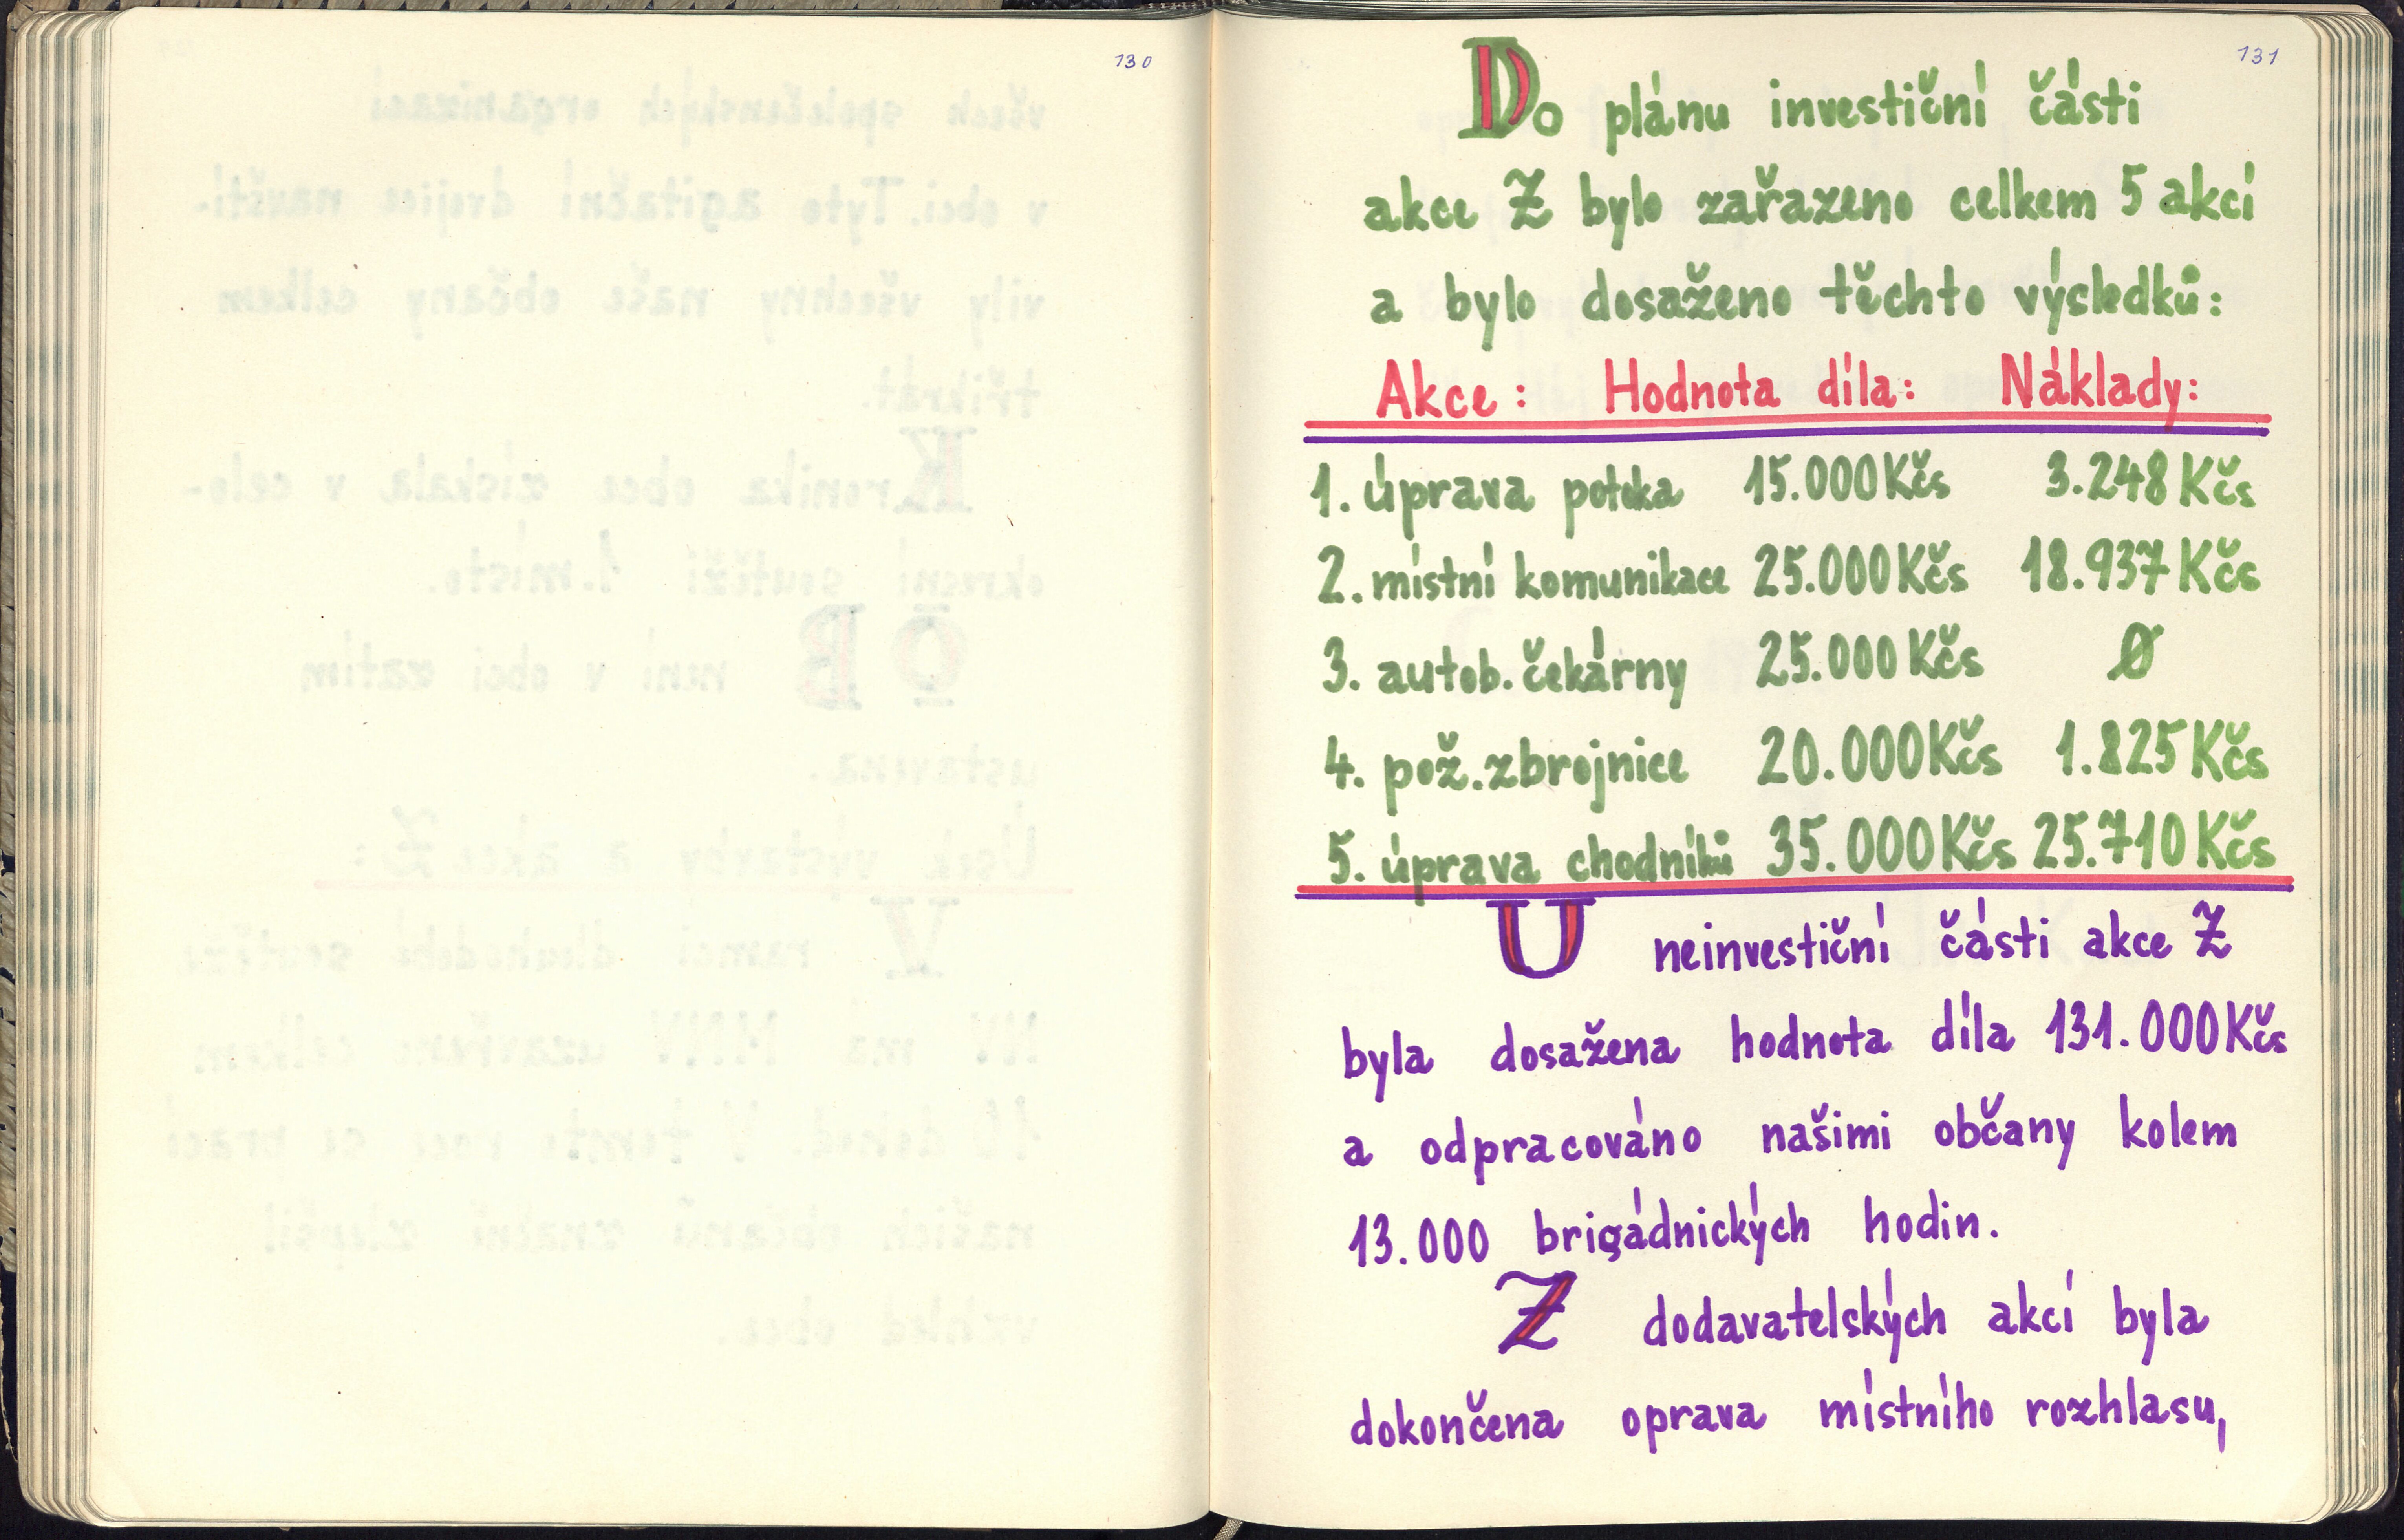 130
131
Do plánu investiční části
akce Z bylo zařazeno celkem 5 akcí
a bylo dosaženo těchto výsledků:
Akce: Hodnota díla: Náklady:
1. úprava potoka 15.000Kčs 3.248Kčs
2. místní komunikace 25.000Kčs 18.937Kčs
3. autob. čekárny 25.000Kčs Ø
4. pož. zbrojnice 20.000Kčs 1.825Kčs
5. úprava chodníků 35.000Kčs 25.710Kčs
U neinvestiční části akce Z
byla dosažena hodnota díla 131.000Kčs
a odpracováno našimi občany kolem
13.000 brigádnických hodin.
Z dodavatelských akcí byla
dokončena oprava místního rozhlasu,